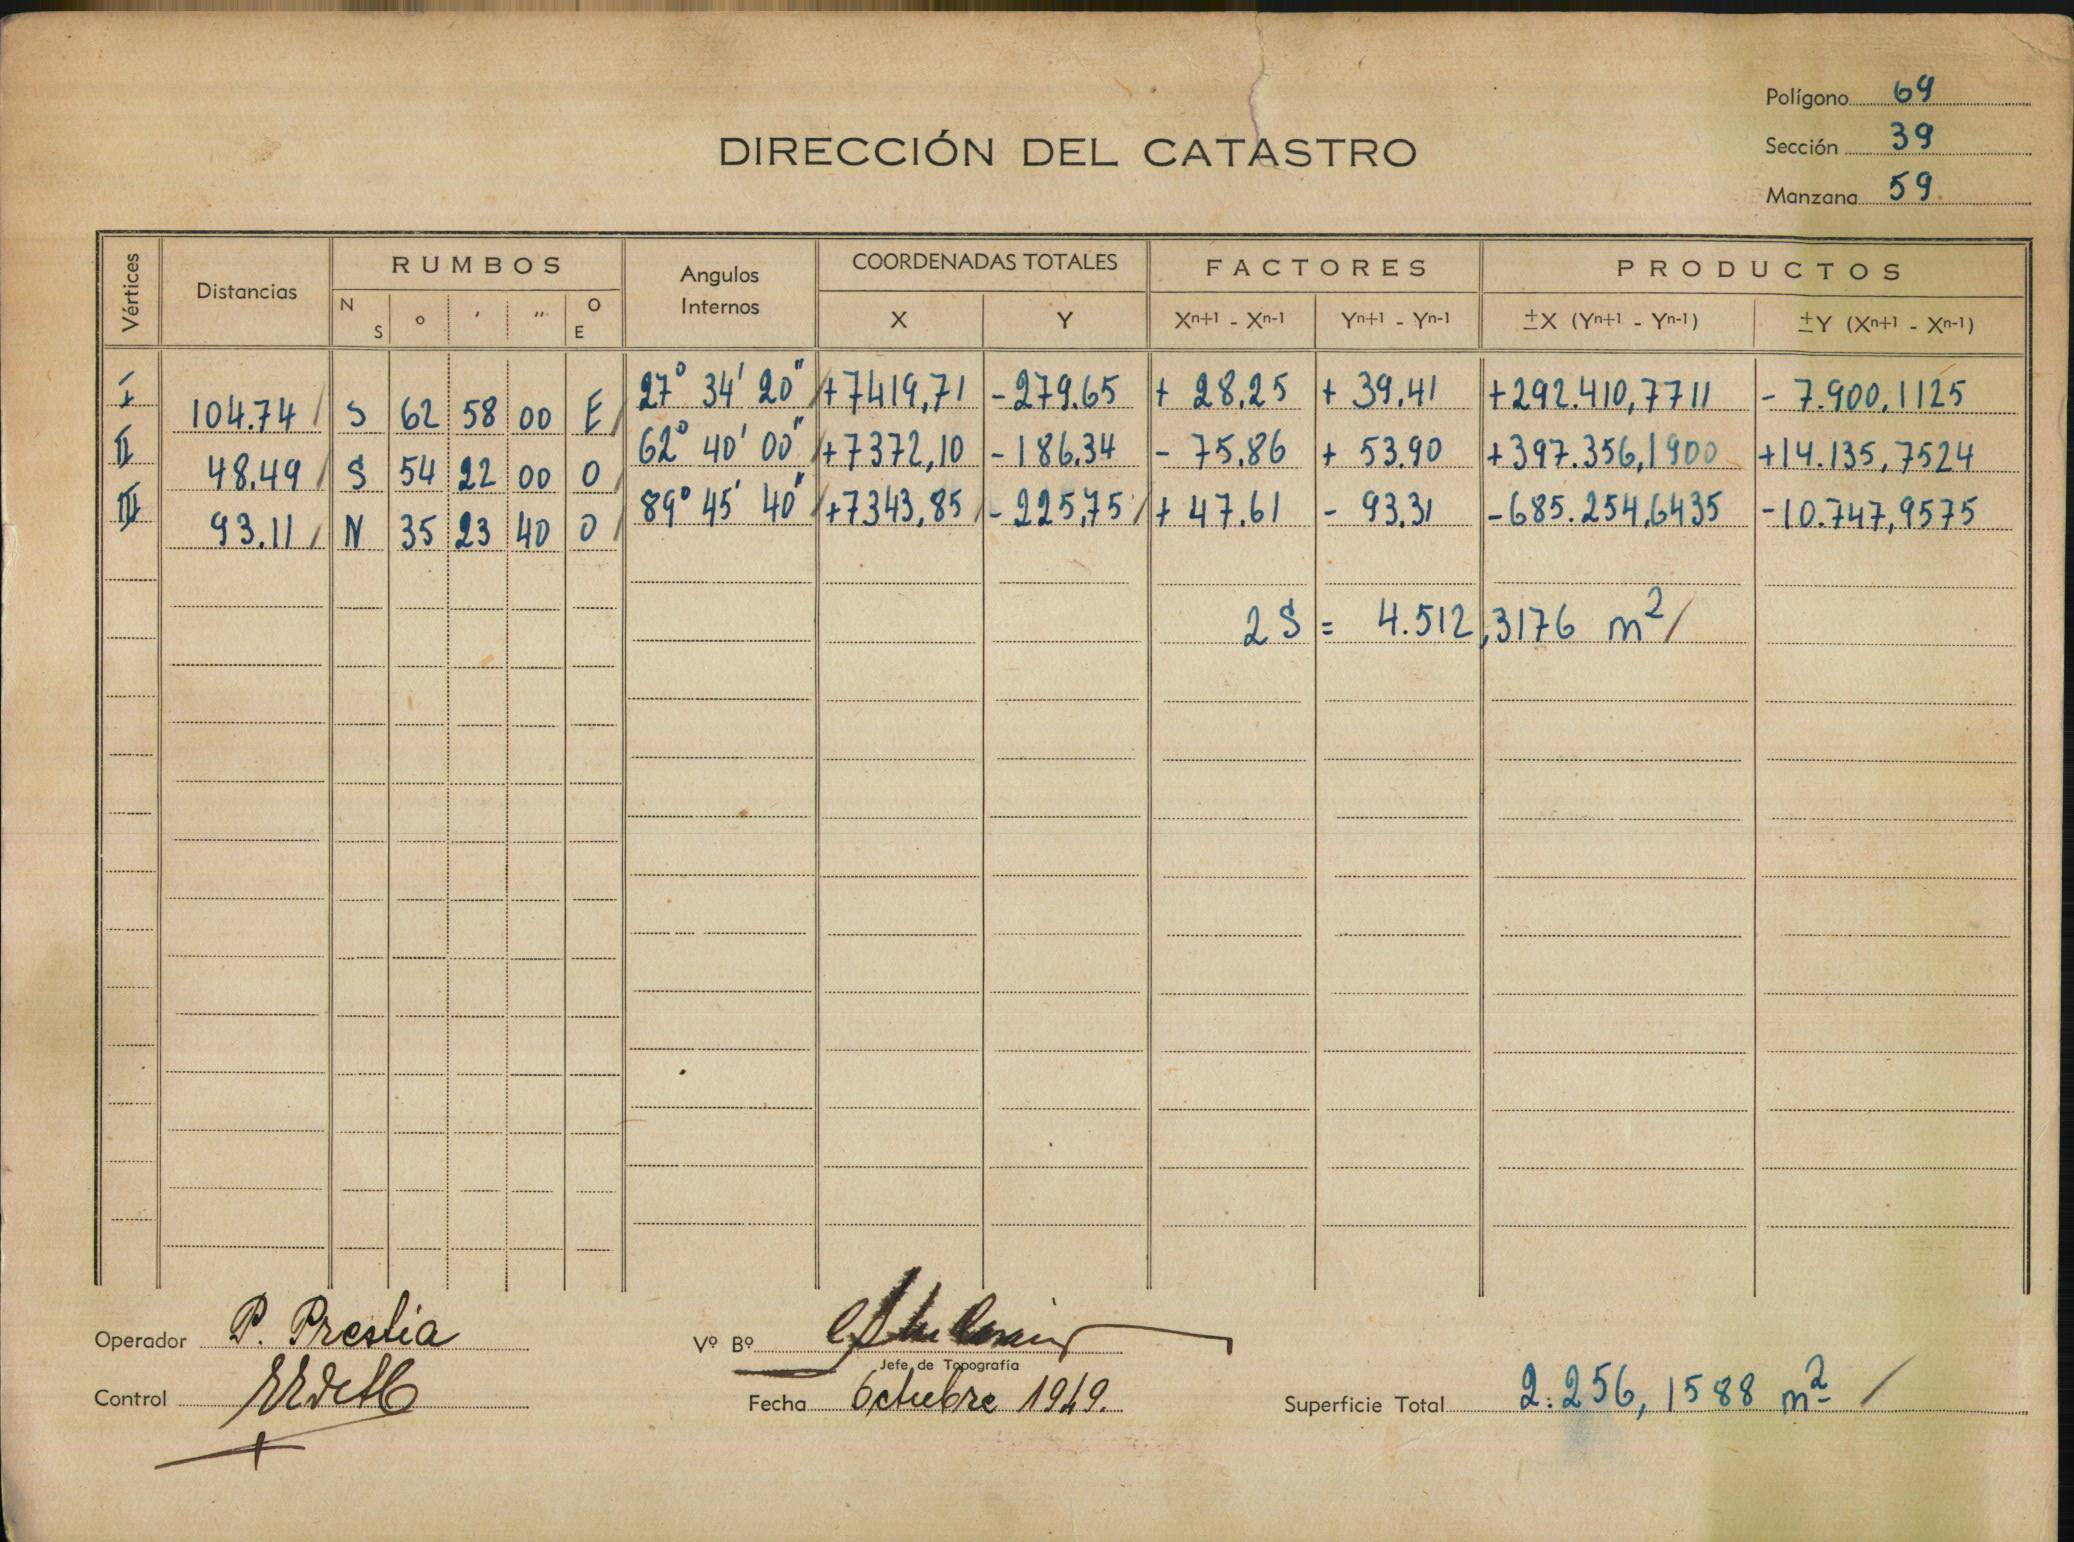 Polígono 69
Sección 39
Manzana 59
DIRECCIÓN DEL CATASTRO
Vértices Distancias RUMBOS Angulos Internos COORDENADAS TOTALES FACTORES PRODUCTOS
N S ° ' " O E X Y Xn+1 - Xn-1 Yn+1 - Yn-1 ±X (Yn+1 - Yn-1) ±Y (Xn+1 - Xn-1)
I 104.74 S 62 58 00 E 27° 34' 20" +7419,71 -279.65 + 28.25 + 39.41 +292.410,7711 - 7.900,1125
II 48.49 S 54 22 00 O 62° 40' 00" +7372,10 -186.34 - 75.86 + 53.90 +397.356,1900 +14.135,7524
III 93.11 N 35 23 40 O 89° 45' 40" +7343,85 -225,75 + 47.61 - 93.31 -685.254,6435 -10.747,9575
2S = 4.512,3176 m²
Operador P. Prestia
Vº Bº
Jefe de Topografía
Control
Fecha Octubre 1949.
Superficie Total 2.256,1588 m²